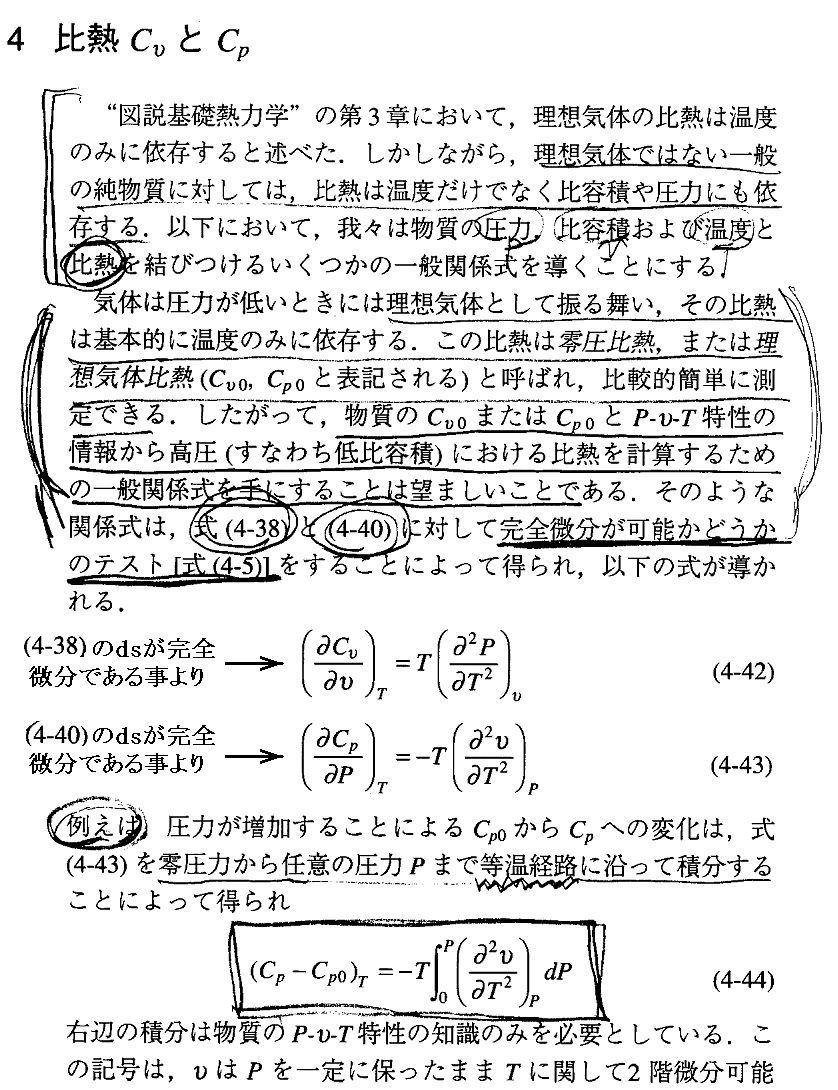 4 比熱 Cυ と Cp
“図説基礎熱力学” の第3章において，理想気体の比熱は温度
のみに依存すると述べた．しかしながら，理想気体ではない一般
の純物質に対しては，比熱は温度だけでなく比容積や圧力にも依
存する．以下において，我々は物質の圧力，比容積および温度と
比熱を結びつけるいくつかの一般関係式を導くことにする．
気体は圧力が低いときには理想気体として振る舞い，その比熱
は基本的に温度のみに依存する．この比熱は零圧比熱，または理
想気体比熱 (Cυ0, Cp0 と表記される) と呼ばれ，比較的簡単に測
定できる．したがって，物質の Cυ0 または Cp0 と P-υ-T 特性の
情報から高圧 (すなわち低比容積) における比熱を計算するため
の一般関係式を手にすることは望ましいことである．そのような
関係式は，式 (4-38) と (4-40) に対して完全微分が可能かどうか
のテスト [式 (4-5)] をすることによって得られ，以下の式が導か
れる．
(4-38)のdsが完全
微分である事より → (∂Cυ/∂υ)T = T(∂²P/∂T²)υ (4-42)
(4-40)のdsが完全
微分である事より → (∂Cp/∂P)T = −T(∂²υ/∂T²)P (4-43)
例えば，圧力が増加することによる Cp0 から Cp への変化は，式
(4-43) を零圧力から任意の圧力 P まで等温経路に沿って積分する
ことによって得られ
(Cp − Cp0)T = −T∫₀ᴾ(∂²υ/∂T²)P dP (4-44)
右辺の積分は物質の P-υ-T 特性の知識のみを必要としている．こ
の記号は，υ は P を一定に保ったまま T に関して2 階微分可能